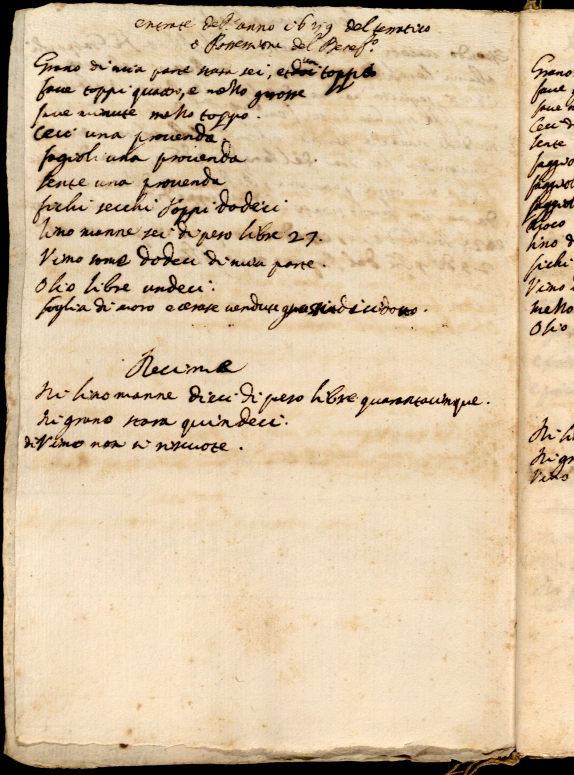 entrate dell'anno 1679 del terratico
e Possessione del Benef.º
Grano di mia parte stara sei, et un toppo
fave toppi quattro, e mezzo grosse
fave minute mezzo toppo.
Ceci una provenda
fagioli una provenda
lente una provenda
fichi secchi toppi dodeci
lino manne sei di peso libre 27.
Vino some dodeci di mia parte.
Olio libre undeci.
foglia di moro e cerase vendute
Decime
Di lino manne dieci di peso libre quarantacinque.
Di grano stara quindeci.
di Vino non si riscuote.
Grano
fave
fave m
Ceci
lente
lino d
fichi
Vino
mezzo
Olio
Di li
Di gr
Vino